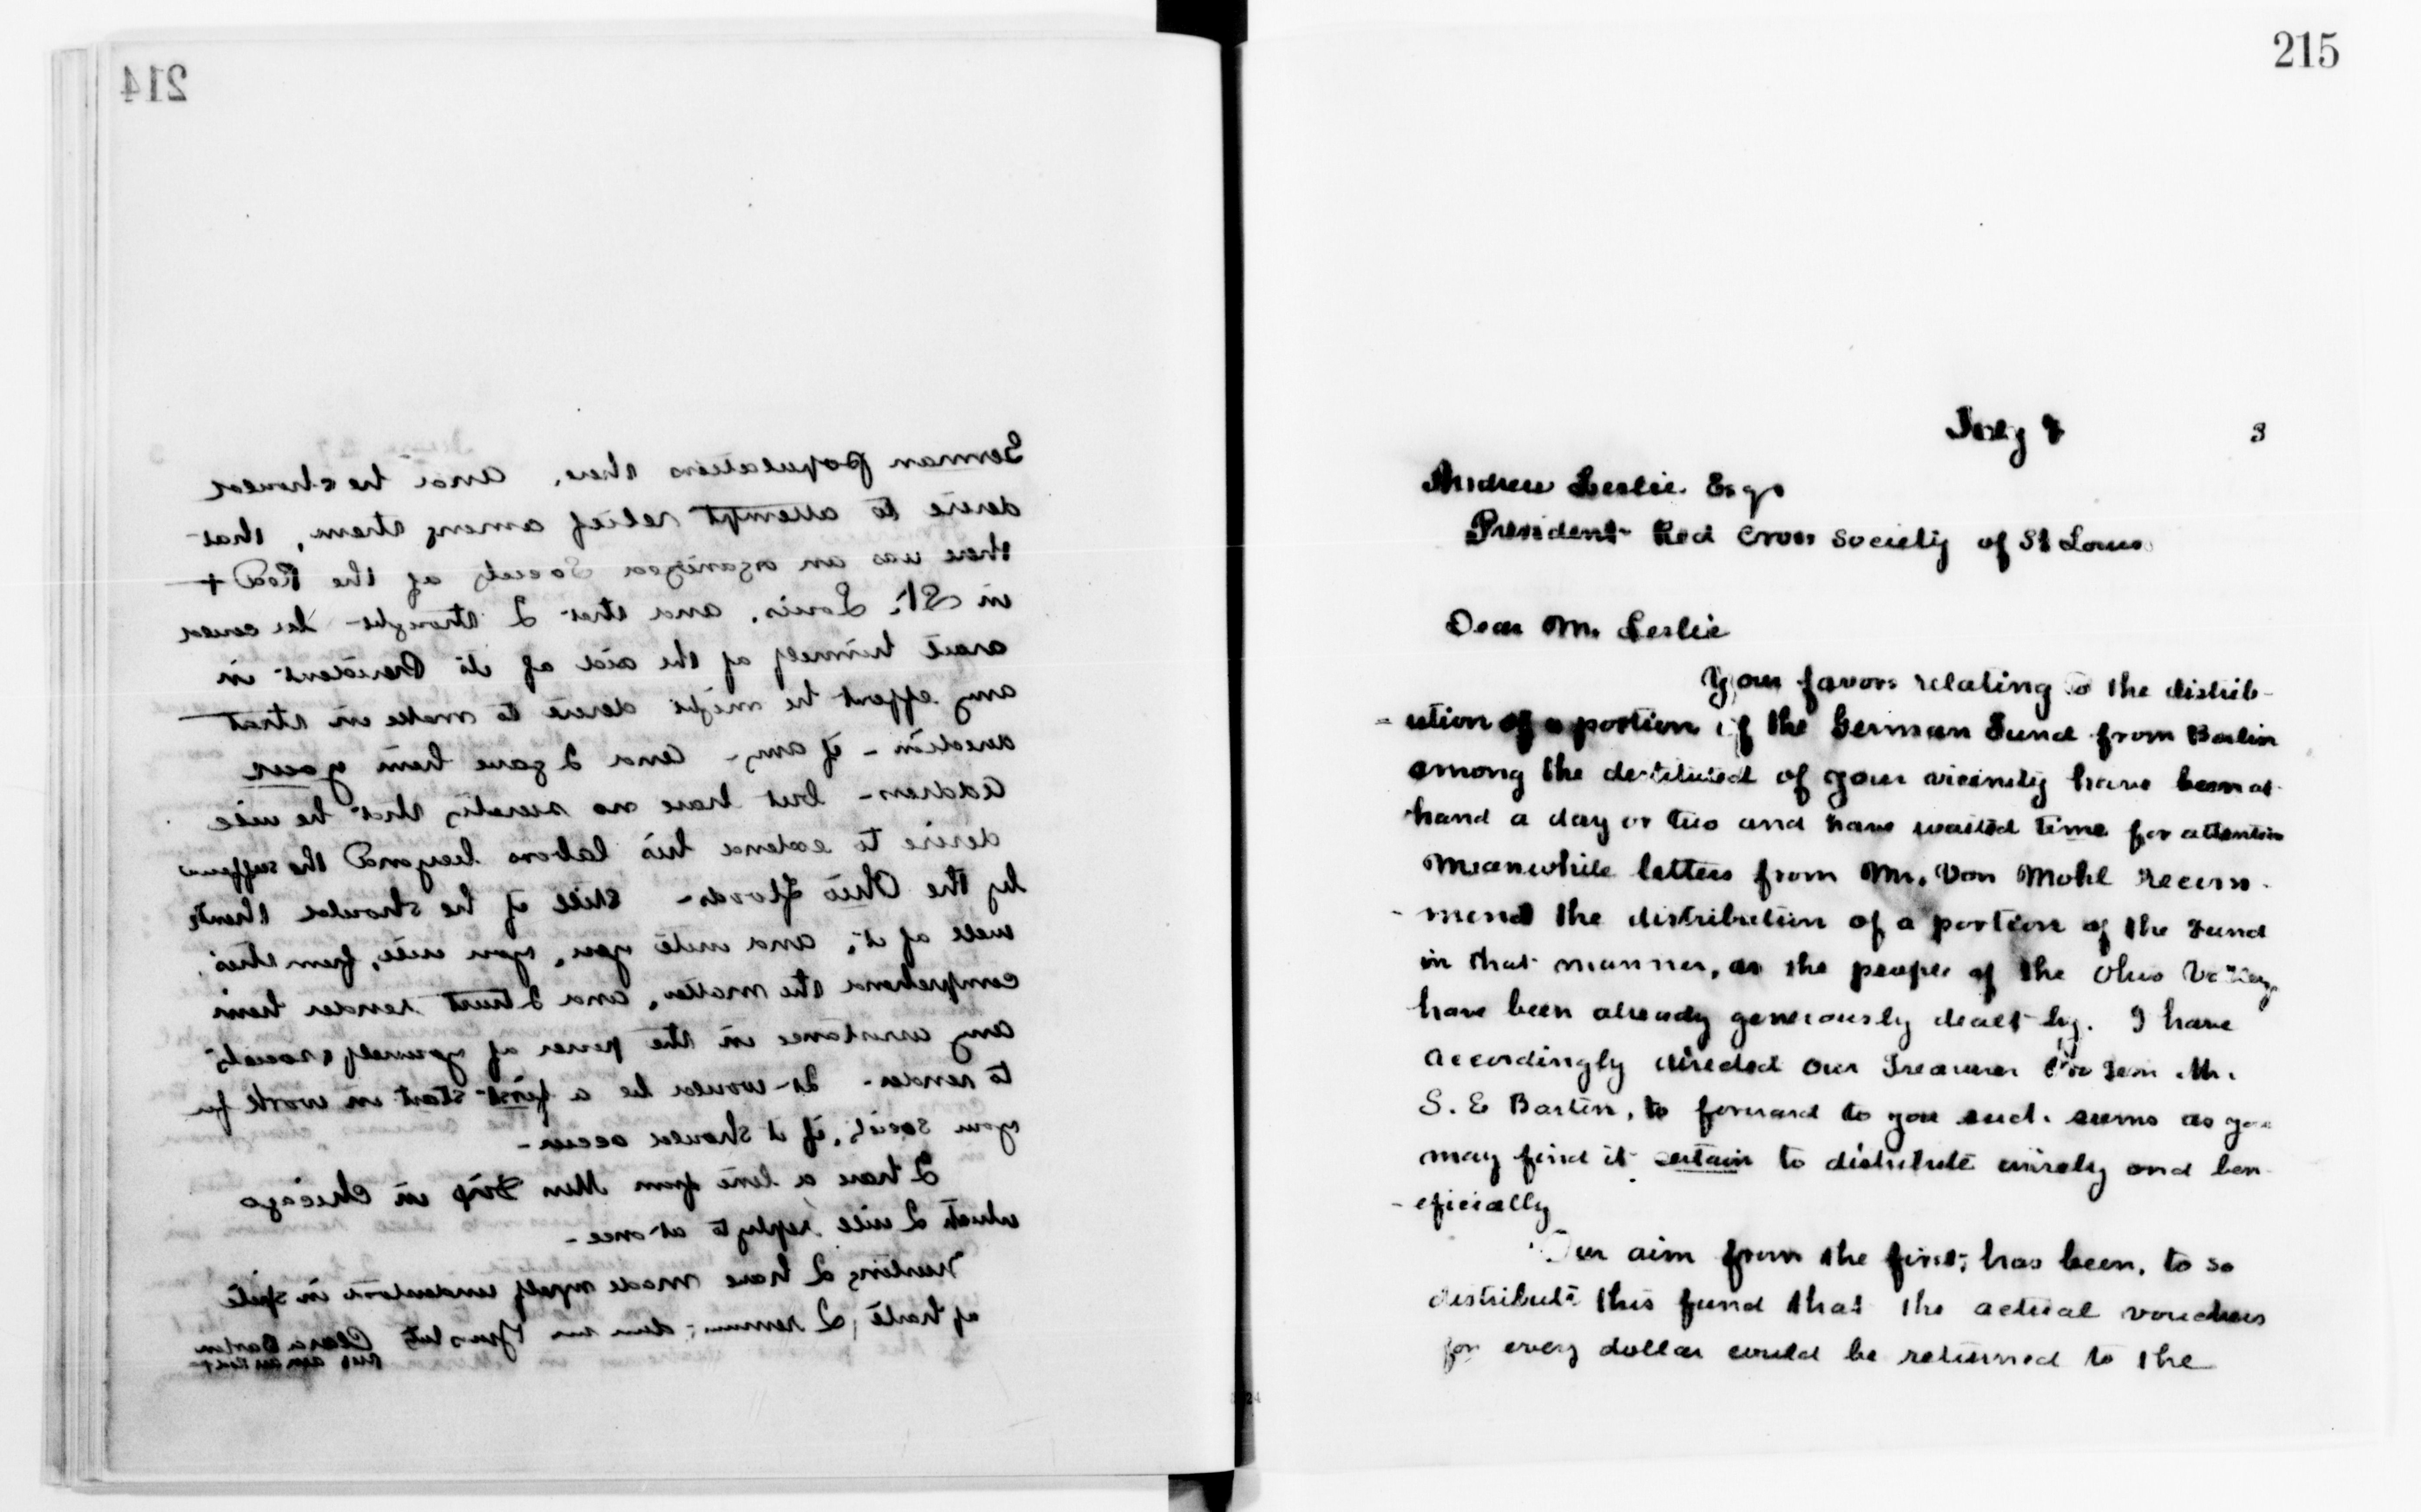 214
German population there, and he should
desire to attempt relief among them, that
there was an organized Society of the Red +
in St. Louis. and that I thought he could
avail himself of the aid of its President in
any effort he might desire to make in that
direction - if any - and I gave him your
address - but have no surety that he will
desire to extend his labors beyond the sufferers
by the Ohio floods - Still if he should think
well of it, and write you, you will, from this,
comprehend the matter, and I trust render him
any assistance in the power of yourself & society
to render. It would be a first start in work for
your society, if it should occur -
I have a line from Miss in Chicago
which I will reply to at once -
Trusting I have made myself understood in spite
of haste, I remain dear sir Yours truly Clara Barton
215
July 9 3
Andrew Leslie Esqr
President Red Cross Society of St Louis
Dear Mr. Leslie
Your favors relating to the distrib-
-ution of a portion of the German Fund from Berlin
among the destitute of your vicinity have been at
hand a day or two and have waited time for attention
Meanwhile letters from Mr. Von Mohl recom-
-mend the distribution of a portion of the Fund
in that manner, as the people of the Ohio Valley
have been already generously dealt by. I have
accordingly directed our Treasurer Pro Tem Mr.
S. E Barton, to forward to you such sums as you
may find it certain to distribute wisely and ben-
-eficially
Our aim from the first, has been, to so
distribute this fund that the actual vouchers
for every dollar could be returned to the